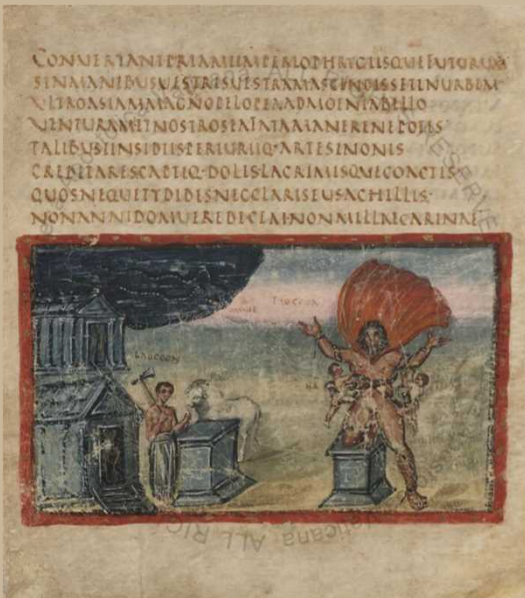 CONUERTANTPRIAMIIMPERIOPHRYGIBUSQUEFUTURUM
SINMANIBUSUESTRISUESTRAMASCENDISSETINURBEM
ULTROASIAMMAGNOPELOPEAADMOENIABELLO
UENTURAMETNOSTROSEAFATAMANERENEPOTES
TALIBUSINSIDIISPERIURIIQ·ARTESINONIS
CREDITARESCAPTIQ·DOLISLACRIMISQUECOACTIS
QUOSNEQUETYDIDESNECLARISEUSACHILLIS·
NONANNIDOMUEREDECEMNONMILLECARINAE
LAOCOON